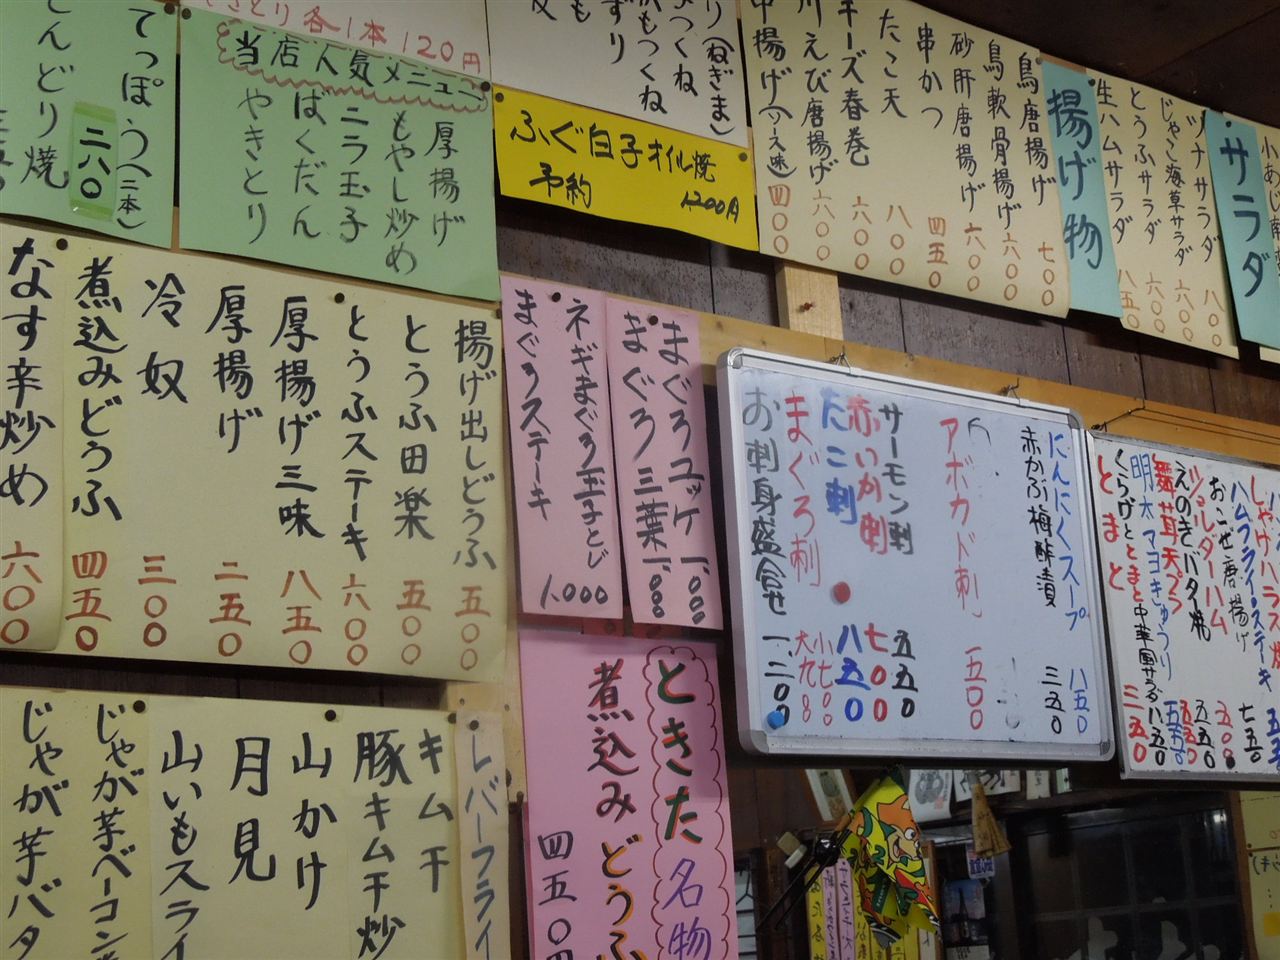 小あじ南
サラダ
ツナサラダ 八〇〇
じゃこ海草サラダ 六〇〇
とうふサラダ 六〇〇
生ハムサラダ 八五〇
揚げ物
鳥唐揚げ 七〇〇
鳥軟骨揚げ 六〇〇
砂肝唐揚げ 六〇〇
串かつ 四五〇
たこ天 八〇〇
チーズ春巻 六〇〇
川えび唐揚げ 六〇〇
中揚げ(ソース味) 四〇〇
り(ねぎま)
つくね
がもつくね
ずり
も
皮
ふぐ白子オイル焼
予約 1,200円
やきとり各1本120円
当店人気メニュー
厚揚げ
もやし炒め
ニラ玉子
ばくだん
やきとり
てっぽう(二本)
二八〇
とんどり焼
揚げ出しどうふ 五〇〇
とうふ田楽 五〇〇
とうふステーキ 六〇〇
厚揚げ三味 八五〇
厚揚げ 二五〇
冷奴 三〇〇
煮込みどうふ 四五〇
なす辛炒め 六〇〇
まぐろユッケ 一、〇〇〇
まぐろ三葉 一、〇〇〇
ネギまぐろ玉子とじ
まぐろステーキ 1,000
にんにくスープ 八五〇
赤かぶ梅酢漬 三五〇
アボカド刺 五〇〇
サーモン刺 五五〇
赤いか刺 七〇〇
たこ刺 八五〇
まぐろ刺 小七〇〇 大九〇〇
お刺身盛合せ 一、二〇〇
しゃけハラス焼
ハムフライ・ステーキ
おこぜ唐揚げ 七五〇
ショルダーハム 五〇〇
えのきバタ焼 五五〇
舞茸天ぷら 五五〇
明太マヨきゅうり 五五〇
くらげとトマト中華風サラダ 八五〇
とまと 三五〇
ときた名物
煮込みどうふ
四五〇円
レバーフライ
キムチ
豚キムチ炒
山かけ
月見
山いもスライ
じゃが芋ベーコン
じゃが芋バタ